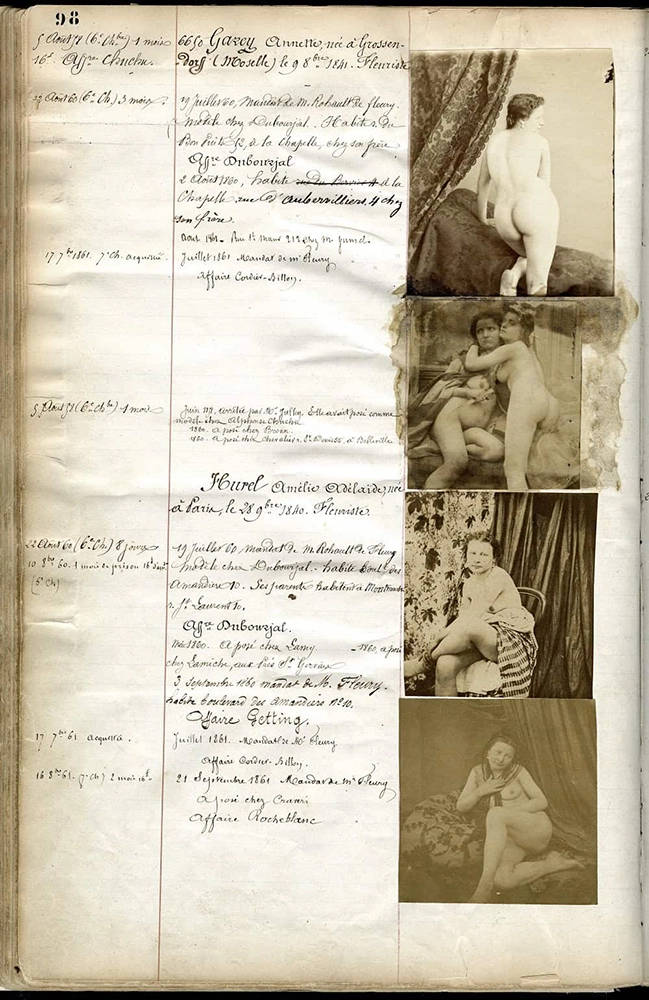 98
5 Août 58 (6e Chbre) 1 mois
16f. Affre. Chuchu.
6650 Gazoy Annette, née à Grossen-
dorff (Moselle) le 9 8bre 1841. Fleuriste
29 Août 60 (6e Ch.) 3 mois.
19 Juillet 60, Mandat de M. Rohault de Fleury.
Modèle chez Dubourjal. Habite r. du
52, à la Chapelle, chez son frère
Affre Dubourjal
2 Août 1860, habite à la
Chapelle, rue d'Aubervilliers, 4 chez
son frère.
Août 1861. Rue St. Maur 212 chez M.
17 7bre 1861. 7e Ch. acquittée
Juillet 1861 Mandat de Mr Fleury
Affaire Cordier-Billon.
5 Août 58 (6e Chbre) 1 mois
arrêtée par Mr. Elle avait posé comme
modèle chez Alphonse Chuchu
1860. a posé chez
1860. a posé chez Chevalier r. St. à Belleville
Hurel Amélie Adélaïde, née
à Paris, le 28 9bre 1840. Fleuriste.
22 Août 60 (6e Ch) 8 jours
10 8bre 60. 1 mois de prison 16f
(8e Ch)
19 Juillet 60, mandat de M. Rohault de Fleury
Modèle chez Dubourjal. habite boul. des
Amandiers 10. Ses parents habitent à Montmartre
r. St. Laurent 10.
Affre Dubourjal.
1860. A posé chez Lamy. - 1860, a posé
chez Lamiche, aux Prés St. Gervais
3 Septembre 1860 mandat de M. Fleury.
habite boulevard des Amandiers No 10.
Affaire Getting.
17 7bre 61 acquittée.
Juillet 1861. Mandat de Mr Fleury
Affaire Cordier-Billon.
16 8bre 61. (7e Ch) 2 mois 16f.
21 Septembre 1861 Mandat de Mr Fleury
a posé chez
Affaire Rocheblanc